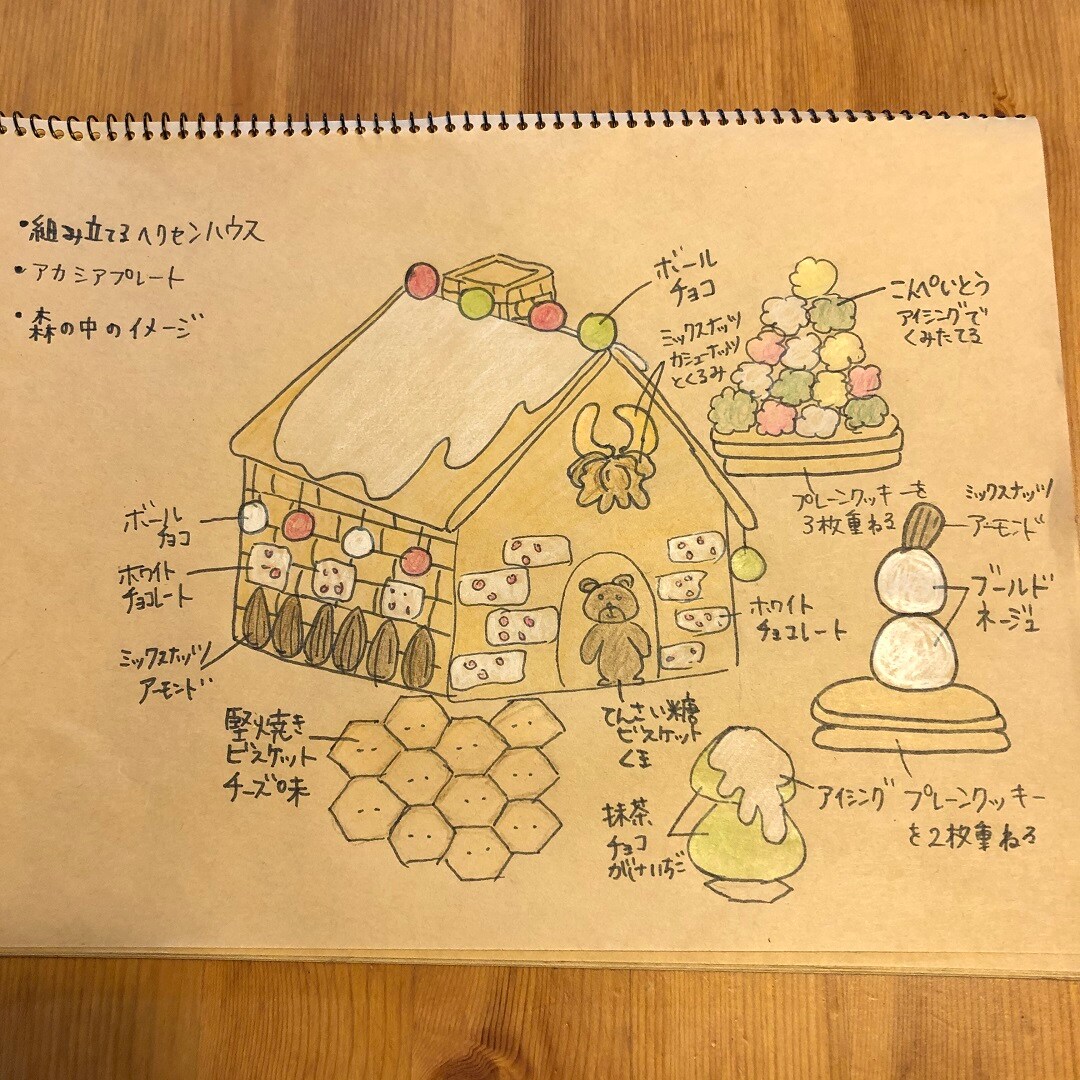 ・組み立てるヘクセンハウス
・アカシアプレート
・森の中のイメージ
ボール
チョコ
ミックスナッツ
カシューナッツ
とくるみ
こんぺいとう
アイシングで
くみたてる
プレーンクッキーを
3枚重ねる
ミックスナッツ
アーモンド
ブールド
ネージュ
ボール
チョコ
ホワイト
チョコレート
ミックスナッツ
アーモンド
ホワイト
チョコレート
堅焼き
ビスケット
チーズ味
てんさい糖
ビスケット
くま
抹茶
チョコ
がけいちご
アイシング
プレーンクッキー
を2枚重ねる